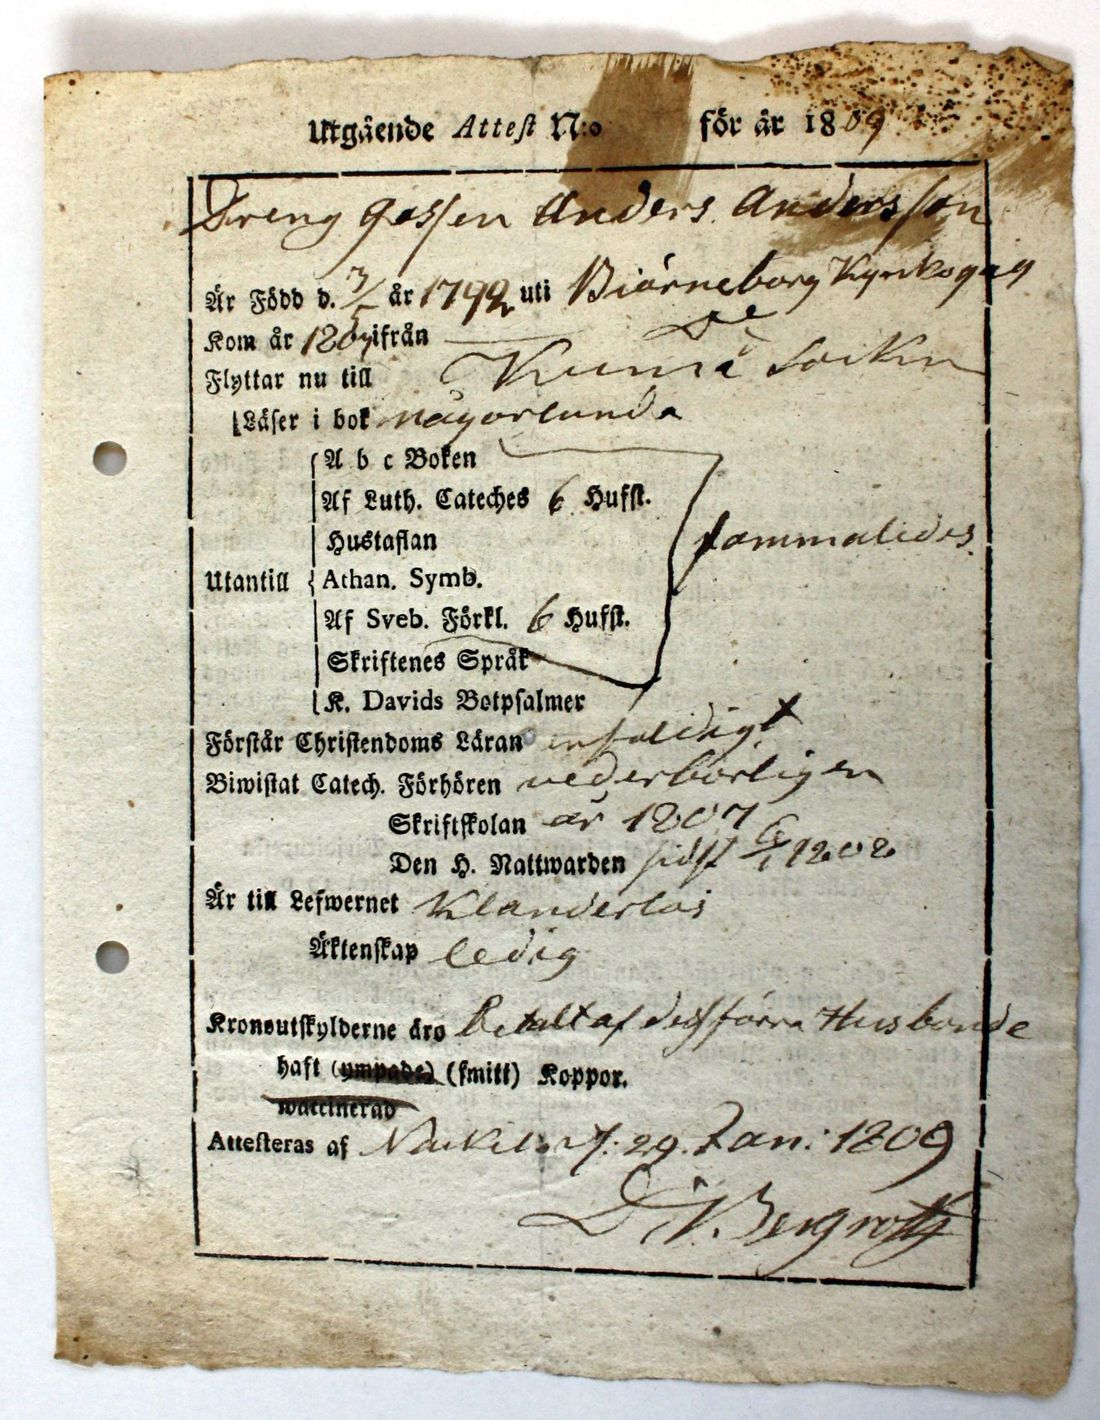 Utgående Attest N:o för år 1809
Dreng gossen Anders Andersson
Är Född d. 3/5 år 1792 uti Biörneborg Kyrko
Kom år 1807 ifrån
Flyttar nu till Kumå Sockn
Läser i bok någorlunda
A b c Boken
Af Luth. Cateches 6 Hufst.
Hustaflan sammaledes
Utantill Athan. Symb.
Af Sveb. Förkl. 6 Hufst.
Skriftenes Språk
K. Davids Botpsalmer
Förstår Christendoms Läran enfaldigt
Biwistat Catech. Förhören vederbörligen
Skriftskolan år 1807
Den H. Nattwarden sidst
Är till Lefwernet Klanderlös
Äktenskap ledig
Kronoutskylderne äro Betalt af dess förra Husbonde
haft (ympade) (smitt) Koppor.
waccinerad
Attesteras af Nackila d. 29. Jan: 1809
D. V. Bergroth